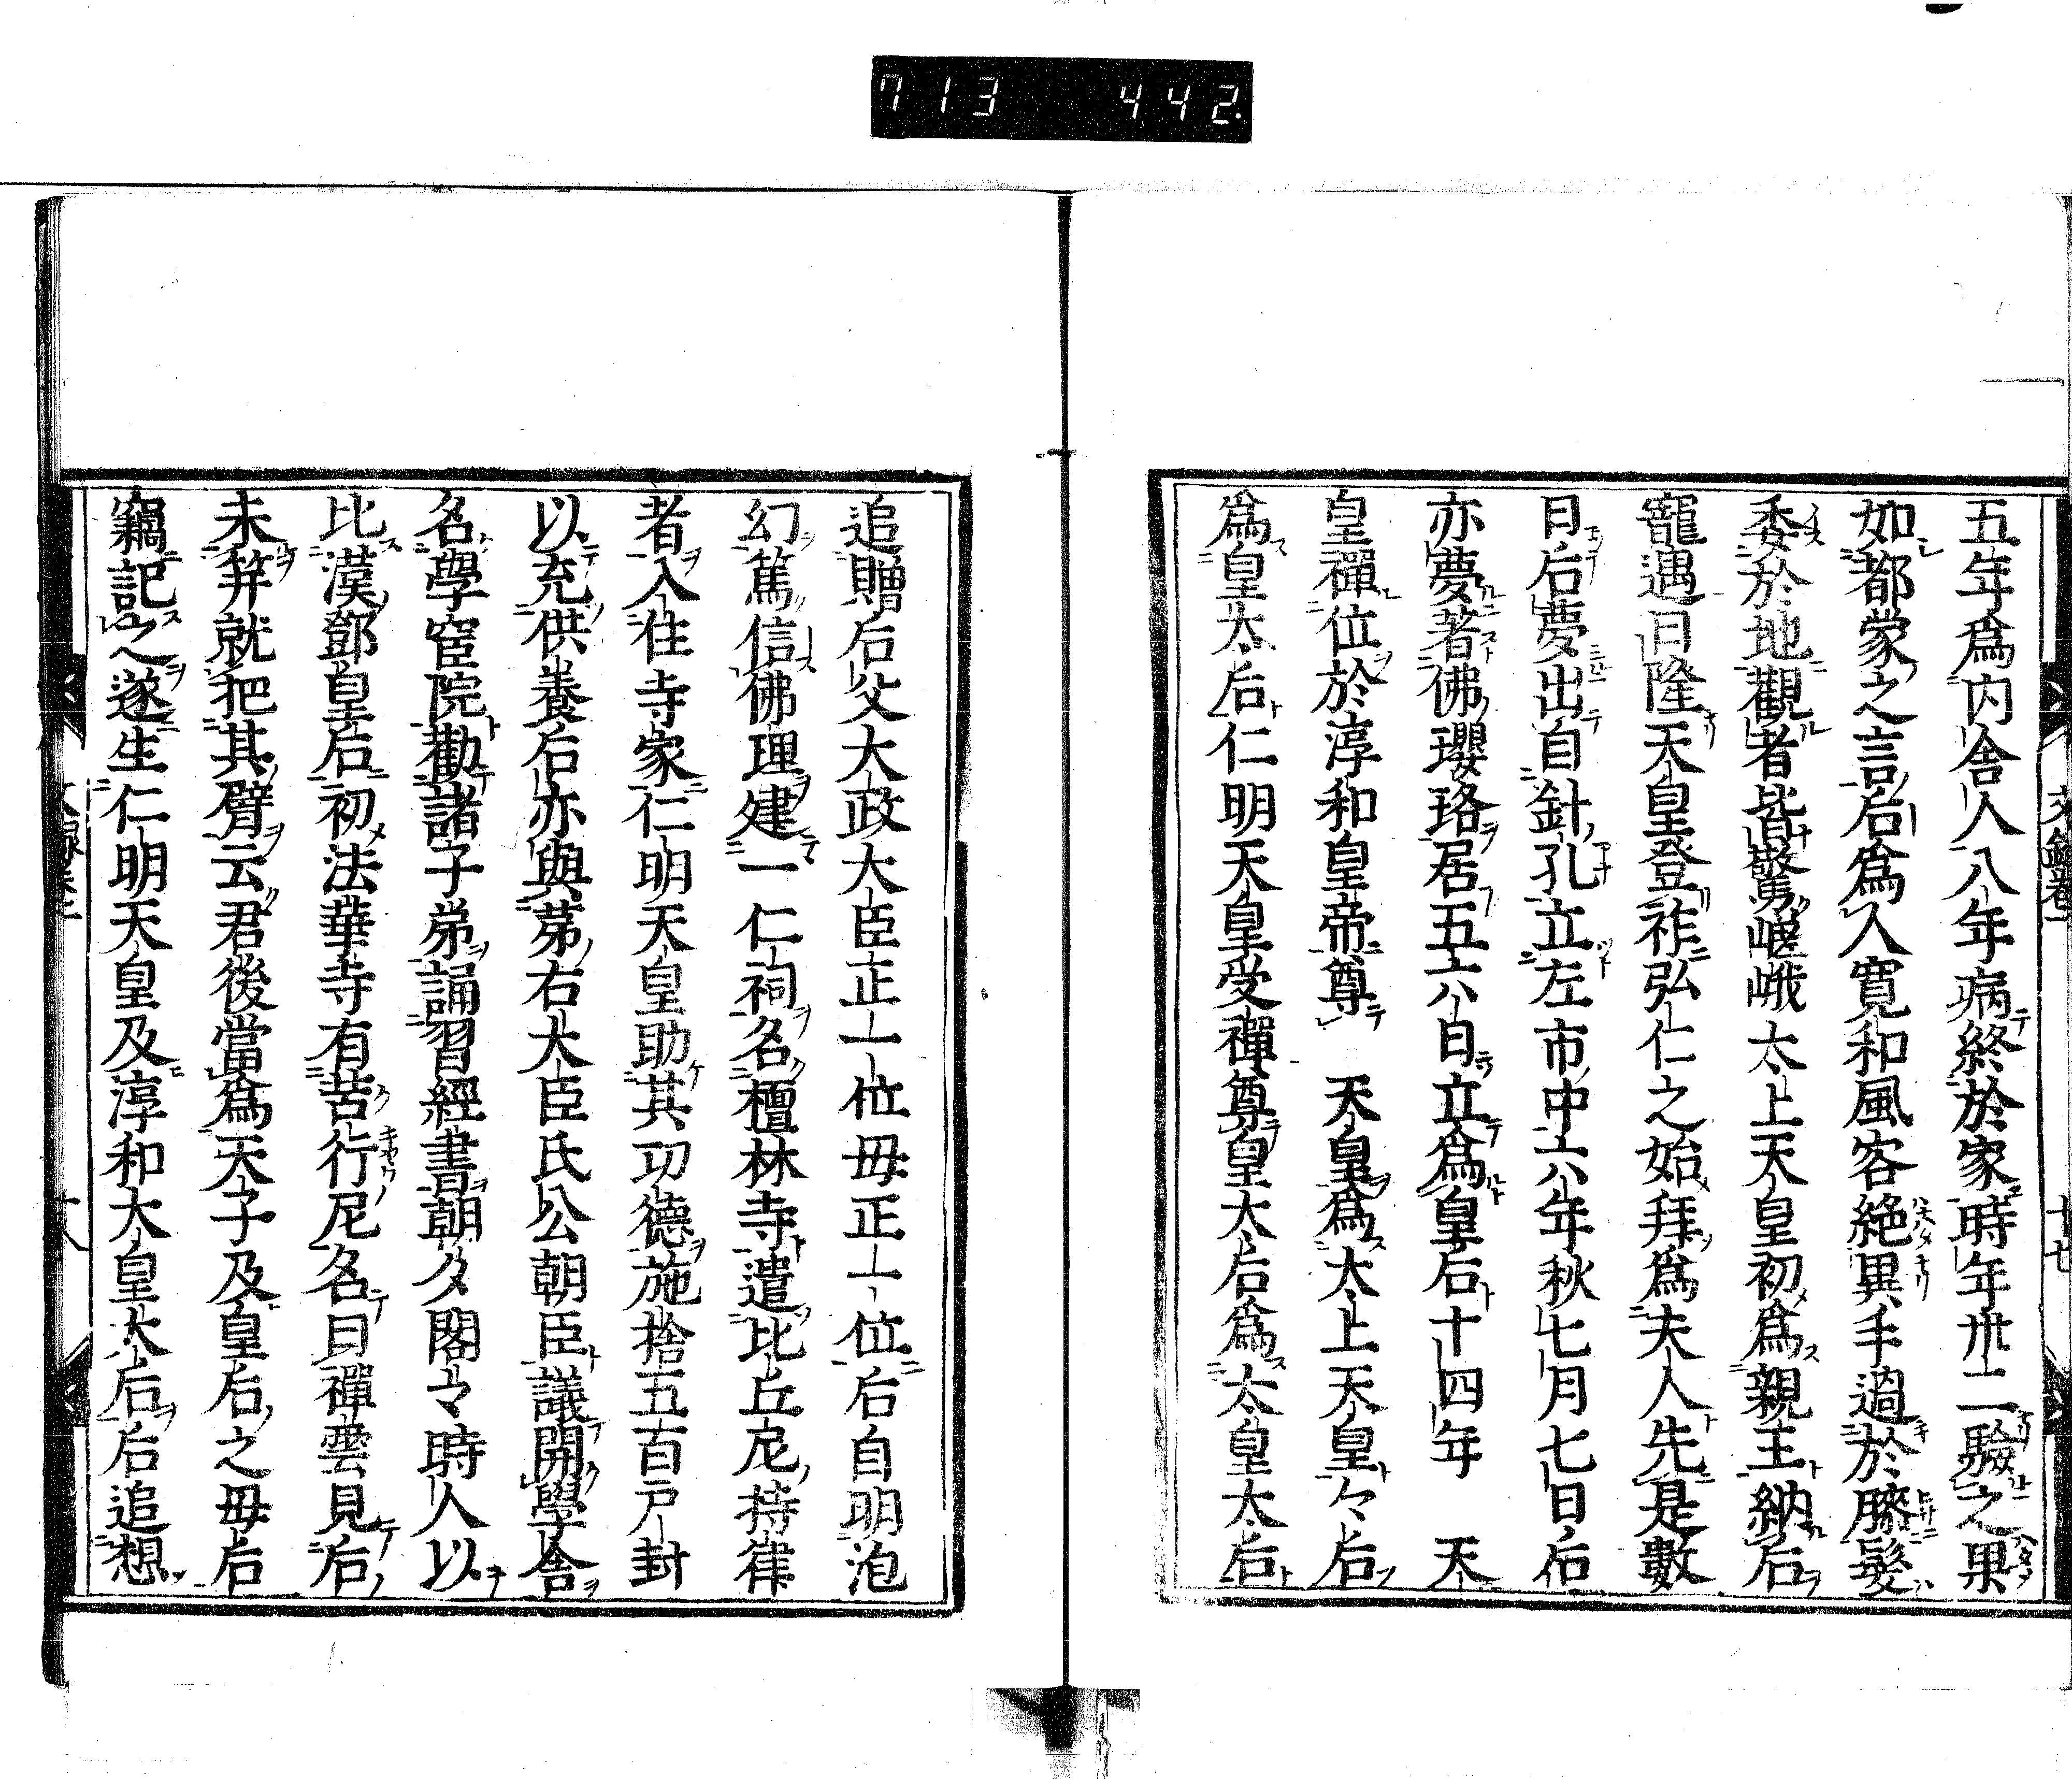 713 442.
五年爲内舍人八年病終於家時年卅二驗之果
如都蒙之言后爲人寛和風容絶異手過於膝髮
委於地觀者皆驚嵯峨太上天皇初爲親王納后
寵遇日隆天皇登祚弘仁之始拜爲夫人先是數
日后夢出自針孔立左市中六年秋七月七日后
亦夢著佛瓔珞居五六日立爲皇后十四年 天
皇禪位於淳和皇帝尊 天皇爲太上天皇々后
爲皇太后仁明天皇受禪尊皇太后爲太皇太后
追贈后父大政大臣正一位母正一位后自明泡
幻篤信佛理建一仁祠名檀林寺遣比丘尼持律
者入住寺家仁明天皇助其功德施捨五百戸封
以充供養后亦與苐右大臣氏公朝臣議開學舍
名學官院勸諸子弟誦習經書朝夕閤々時人以
比漢鄧皇后初法華寺有苦行尼名曰禪雲見后
未笄就把其臂云君後當爲天子及皇后之母后
竊記之遂生仁明天皇及淳和太皇太后后追想